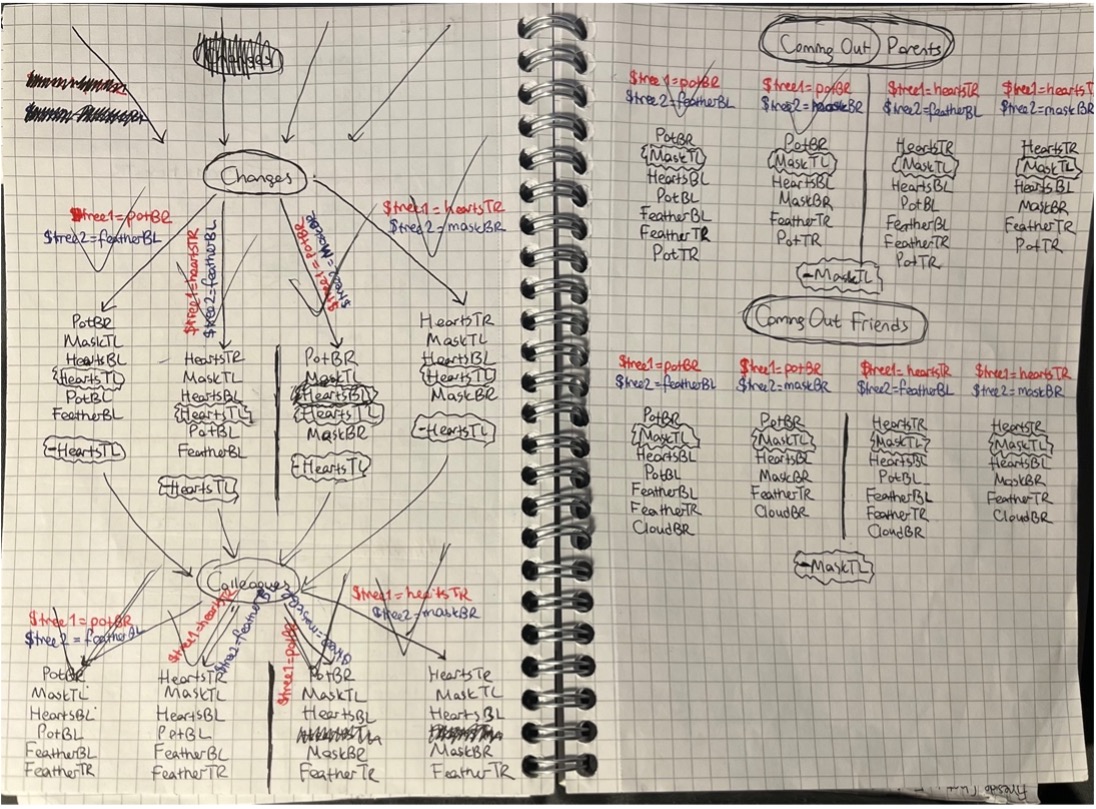 Changes
$tree1=potBR
$tree2=featherBL
$tree1=heartsTR
$tree2=featherBL
$tree1=potBR
$tree2=MaskBR
$tree1=heartsTR
$tree2=maskBR
PotBR
MaskTL
HeartsBL
HeartsTL
PotBL
FeatherBL
-HeartsTL
HeartsTR
MaskTL
HeartsBL
HeartsTL
PotBL
FeatherBL
-HeartsTL
PotBR
MaskTL
HeartsBL
HeartsTL
MaskBR
-HeartsTL
HeartsTR
MaskTL
HeartsBL
HeartsTL
MaskBR
-HeartsTL
Colleagues
$tree1=potBR
$tree2=featherBL
$tree1=heartsTR
$tree2=featherBL
$tree1=potBR
$tree2=maskBR
$tree1=heartsTR
$tree2=maskBR
PotBR
MaskTL
HeartsBL
PotBL
FeatherBL
FeatherTR
HeartsTR
MaskTL
HeartsBL
PotBL
FeatherBL
FeatherTR
PotBR
MaskTL
HeartsBL
MaskBR
FeatherTR
HeartsTR
MaskTL
HeartsBL
MaskBR
FeatherTR
Coming Out Parents
$tree1=potBR
$tree2=featherBL
$tree1=potBR
$tree2=maskBR
$tree1=heartsTR
$tree2=featherBL
$tree1=heartsT
$tree2=maskBR
PotBR
MaskTL
HeartsBL
PotBL
FeatherBL
FeatherTR
PotTR
PotBR
MaskTL
HeartsBL
MaskBR
FeatherTR
PotTR
HeartsTR
MaskTL
HeartsBL
PotBL
FeatherBL
FeatherTR
PotTR
HeartsTR
MaskTL
HeartsBL
MaskBR
FeatherTR
PotTR
-MaskTL
Coming Out Friends
$tree1=potBR
$tree2=featherBL
$tree1=potBR
$tree2=maskBR
$tree1=heartsTR
$tree2=featherBL
$tree1=heartsTR
$tree2=maskBR
PotBR
MaskTL
HeartsBL
PotBL
FeatherBL
FeatherTR
CloudBR
PotBR
MaskTL
HeartsBL
MaskBR
FeatherTR
CloudBR
HeartsTR
MaskTL
HeartsBL
PotBL
FeatherBL
FeatherTR
CloudBR
HeartsTR
MaskTL
HeartsBL
MaskBR
FeatherTR
CloudBR
-MaskTL